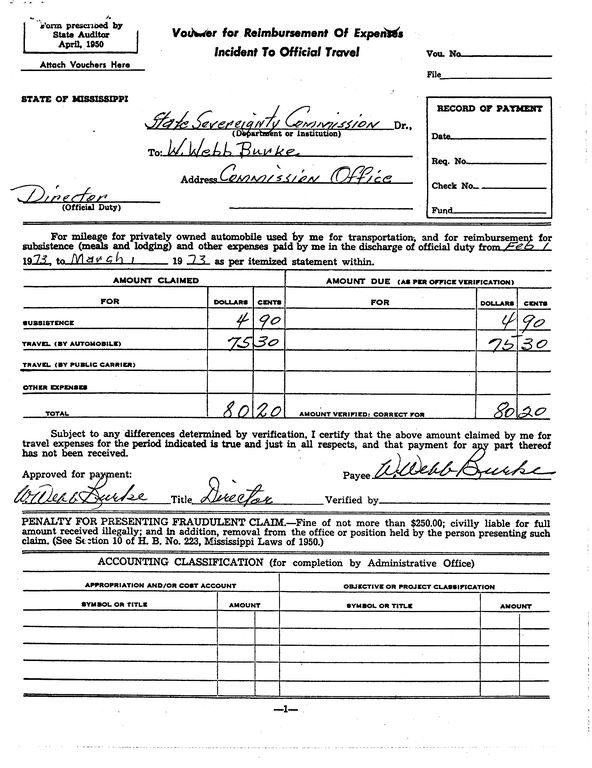 Form prescribed by
State Auditor
April, 1950
Attach Vouchers Here
Voucher for Reimbursement Of Expenses
Incident To Official Travel
Vou. No.
File
STATE OF MISSISSIPPI
State Sovereignty Commission Dr.,
(Department or Institution)
To: W. Webb Burke
Address Commission Office
Director
(Official Duty)
RECORD OF PAYMENT
Date
Req. No.
Check No.
Fund
For mileage for privately owned automobile used by me for transportation, and for reimbursement for
subsistence (meals and lodging) and other expenses paid by me in the discharge of official duty from Feb 1
1973, to March 1 1973 as per itemized statement within.
AMOUNT CLAIMED AMOUNT DUE (AS PER OFFICE VERIFICATION)
FOR DOLLARS CENTS FOR DOLLARS CENTS
SUBSISTENCE 4 90 4 90
TRAVEL (BY AUTOMOBILE) 75 30 75 30
TRAVEL (BY PUBLIC CARRIER)
OTHER EXPENSES
TOTAL 80 20 AMOUNT VERIFIED; CORRECT FOR 80 20
Subject to any differences determined by verification, I certify that the above amount claimed by me for
travel expenses for the period indicated is true and just in all respects, and that payment for any part thereof
has not been received.
Approved for payment: Payee W. Webb Burke
W. Webb Burke Title Director Verified by
PENALTY FOR PRESENTING FRAUDULENT CLAIM.—Fine of not more than $250.00; civilly liable for full
amount received illegally; and in addition, removal from the office or position held by the person presenting such
claim. (See Section 10 of H. B. No. 223, Mississippi Laws of 1950.)
ACCOUNTING CLASSIFICATION (for completion by Administrative Office)
APPROPRIATION AND/OR COST ACCOUNT OBJECTIVE OR PROJECT CLASSIFICATION
SYMBOL OR TITLE AMOUNT SYMBOL OR TITLE AMOUNT
—1—